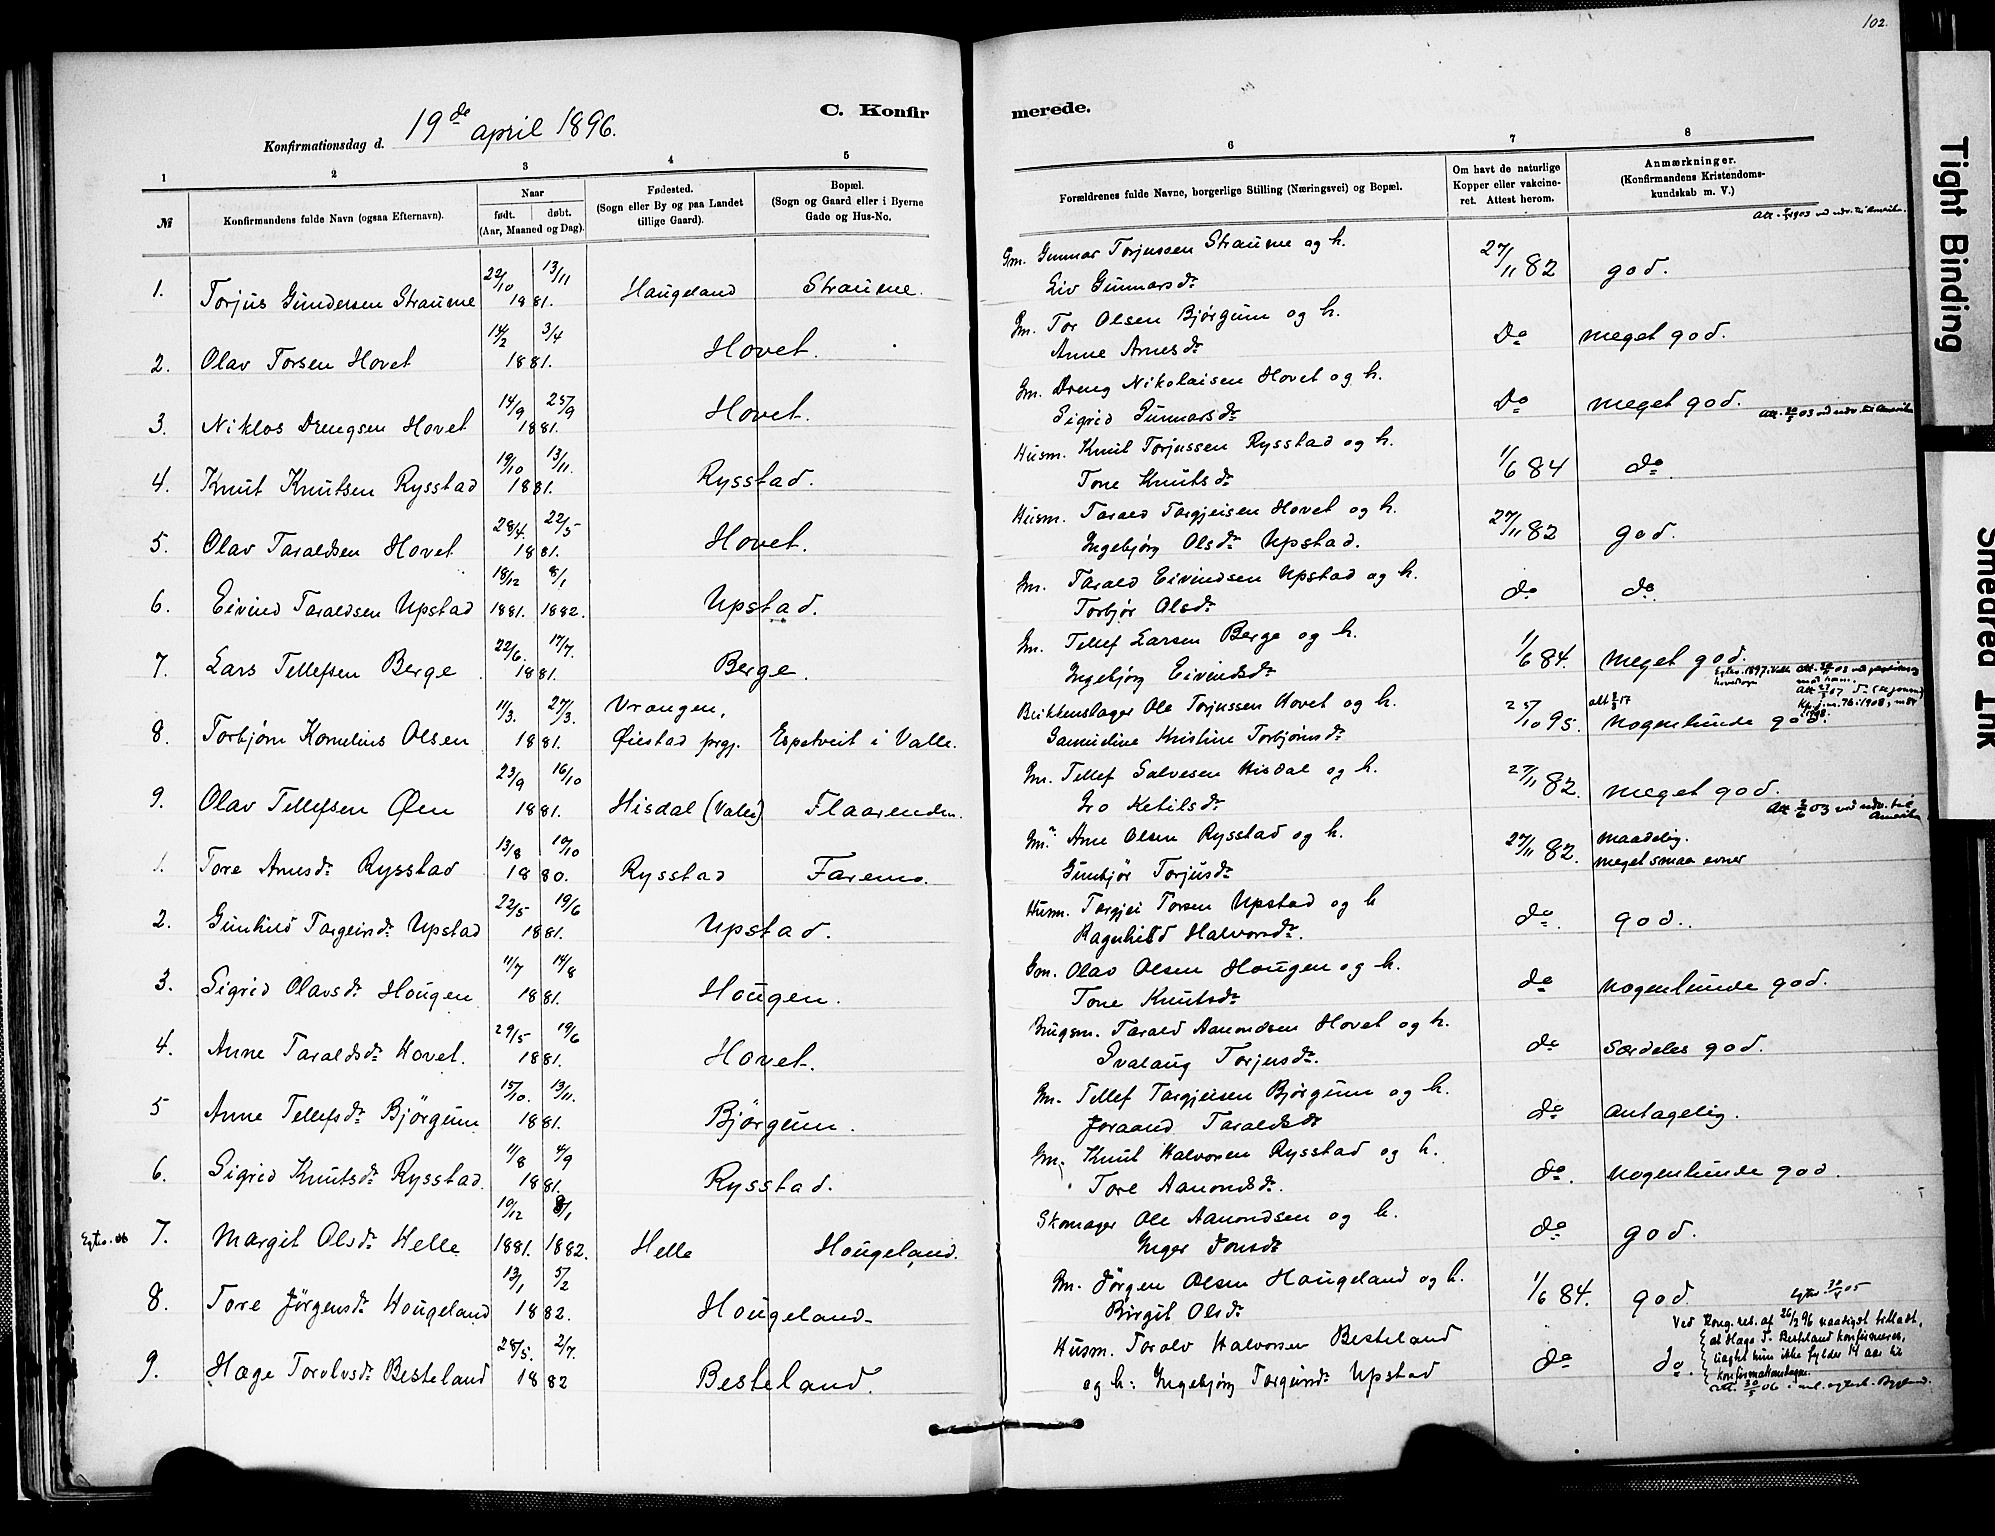 102.
C. Konfirmerede.
Konfirmationsdag d. 19de april 1896.
1 2 3 4 5 6 7 8
№
Konfirmandens fulde Navn (ogsaa Efternavn).
Naar
født. døbt.
(Aar, Maaned og Dag).
Fødested.
(Sogn eller By og paa Landet
tillige Gaard).
Bopæl.
(Sogn og Gaard eller i Byerne
Gade og Hus-No.
Forældrenes fulde Navne, borgerlige Stilling (Næringsvei) og Bopæl.
Om havt de naturlige
Kopper eller vakcine-
ret. Attest herom.
Anmærkninger.
(Konfirmandens Kristendoms-
kundskab m. V.)
1. Torjus Gundersen Straume 22/10 13/11 1881. Haugeland Straume. Gm. Gunnar Torjussen Straume og h.
Liv Gunnarsdr 27/11 82 god.
2. Olav Torsen Hovet 14/2 3/4 1881. Hovet. Gm. Tor Olsen Bjørgum og h.
Anne Arnesdr Do meget god.
3. Niklos Drengsen Hovet 14/9 25/9 1881. Hovet. Gm. Dreng Nikolaisen Hovet og h.
Sigrid Gunnarsdr Do meget god.
4. Knut Knutsen Rysstad 19/10 13/11. 1881. Rysstad. Husm. Knut Torjussen Rysstad og h.
Tone Knutsdr 1/6 84 do
5. Olav Taraldsen Hovet 28/4. 22/5 1881. Hovet. Husm. Tarald Targjeisen Hovet og h.
Ingebjørg Olsdr Upstad. 27/11 82 god.
6. Eivind Taraldsen Upstad 18/12 8/1 1881. 1882. Upstad. Gm. Tarald Eivindsen Upstad og h.
Torbjør Olsdr do do.
7. Lars Tellefsen Berge 22/6. 17/7. 1881. Berge. Gm. Tellef Larsen Berge og h.
Ingebjørg Eivindsdr 1/6 84. meget god.
8. Torbjørn Kornelius Olsen 11/3. 27/3. 1881. Vrangen,
Øiestad prgj. Espetveit i Valle. Blikkenslager Ole Torjussen Hovet og h.
Samueline Kristine Torbjørnsdr 25/10 95. nogenlunde god.
9. Olav Tellefsen Øen 23/9 16/10 1881. Hisdal (Valle) Flaarenden. Gm. Tellef Salvesen Hisdal og h.
Gro Ketilsdr 27/11 82. meget god.
1. Tore Arnesdr Rysstad 13/8 10/10 1880. Rysstad Faremo. Gm. Arne Olsen Rysstad og h.
Gunbjør Torjusdr 27/11 82. maadelig.
meget smaa evner
2. Gunhild Targeirsdr Upstad 22/5 19/6 1881. Upstad. Husm. Targjei Torsen Upstad og h
Ragnhild Halvorsdr. do. god.
3. Sigrid Olavsdr Hougen 11/7 14/8 1881. Hougen. Gm. Olav Olsen Hougen og h.
Tone Knutsdr do nogenlunde god.
4. Anne Taraldsdr Hovet. 29/5 19/6 1881. Hovet. Brugsm. Tarald Aanondsen Hovet og h.
Svalaug Torjusdr. do særdeles god.
5 Anne Tellefsdr Björgum 15/10. 13/11. 1881. Björgum. Gm. Tellef Targjeisen Bjørgum og h.
Joraand Taraldsdr do antagelig.
6. Sigrid Knutsdr Rysstad. 11/8 4/9 1881. Rysstad. Gm. Knut Halvorsen Rysstad og h.
Tore Aanondsdr. do. nogenlunde god.
7. Margit Olsdr Helle 10/12 8/1 1881. 1882. Helle Hougeland. Skomager Ole Aanondsen og h.
Inger Jonsdr do god.
8. Tore Jørgensdr Hougeland 13/1 5/2 1882. Hougeland. Gm. Jørgen Olsen Haugeland og h.
Birgit Olsdr 1/6 84. god.
9. Hæge Torolvsdr Besteland 28/5. 2/7. 1882 Besteland. Husm. Torolv Halvorsen Besteland
og h: Ingebjørg Torgeirsdr Upstad do do.
Ved Kong. res. af 26/2 96 naadigst tilladt,
at Hæge T. Besteland konfirmeres,
uagtet hun ikke fylder 14 aar til
konfirmationsdagen.
Tight Binding
Smeared Ink